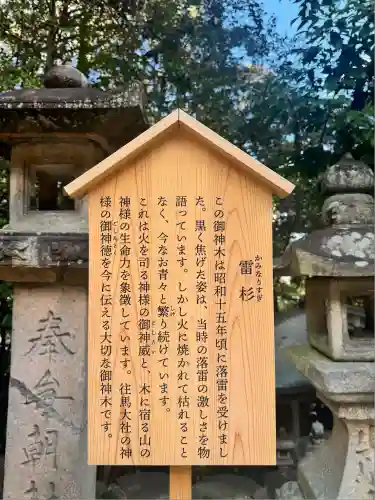 雷杉
かみなりすぎ
この御神木は昭和十五年頃に落雷を受けまし
た。黒く焦げた姿は、当時の落雷の激しさを物
語っています。しかし火に焼かれて枯れること
なく、今なお青々と繁り続けています。
しげ
これは火を司る神様の御神威と、木に宿る山の
神様の生命力を象徴しています。往馬大社の神
様の御神徳を今に伝える大切な御神木です。
ごしんとく
奉
朝